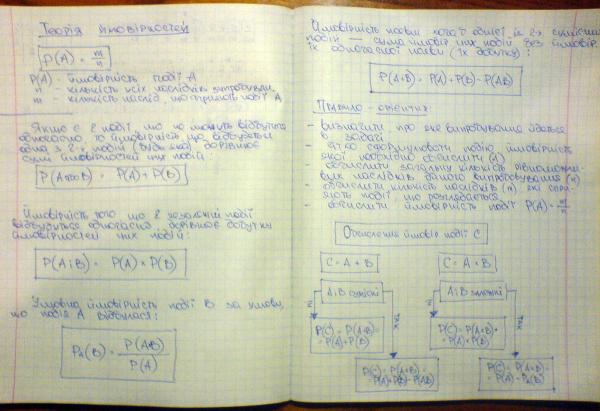 Теорія ймовірностей
P(A) = m/n
P(A) - ймовірність події A
n - кількість усіх наслідків випробувань
m - кількість наслід, що сприяють події A
Якщо є 2 події що не можуть відбутися
одночасно то ймовірність що відбудеться
одна з 2-х подій (будь яка) дорівнює
сумі ймовірностей цих подій:
P(A або B) = P(A) + P(B)
Ймовірність того що 2 незалежні події
відбудуться одночасно дорівнює добутку
ймовірностей цих подій:
P(A і B) = P(A) × P(B)
Умовна ймовірність події B за умови,
що подія A відбулася:
P_A(B) = P(AB)/P(A)
Ймовірність появи хоча б однієї із 2-х сумісних
подій — сума ймовір цих подій без ймовір.
їх одночасної появи (їх добутку):
P(A+B) = P(A) + P(B) - P(AB)
Правило - орієнтир:
- визначити про яке випробування йдеться
в задачі
- чітко сформулювати подію ймовірність
якої необхідно обчислити (A)
- обчислити загальну кількість рівноможли-
вих наслідків даного випробування (n)
- обчислити кількість наслідків (m), які спри-
яють події, що розглядається
- обчислити ймовірність події P(A) = m/n
Обчислення ймовір події C
C = A + B C = A × B
A і B сумісні A і B залежні
ні так ні так
P(C) = P(A+B) =
= P(A) + P(B)
P(C) = P(A+B) =
= P(A) + P(B) - P(AB)